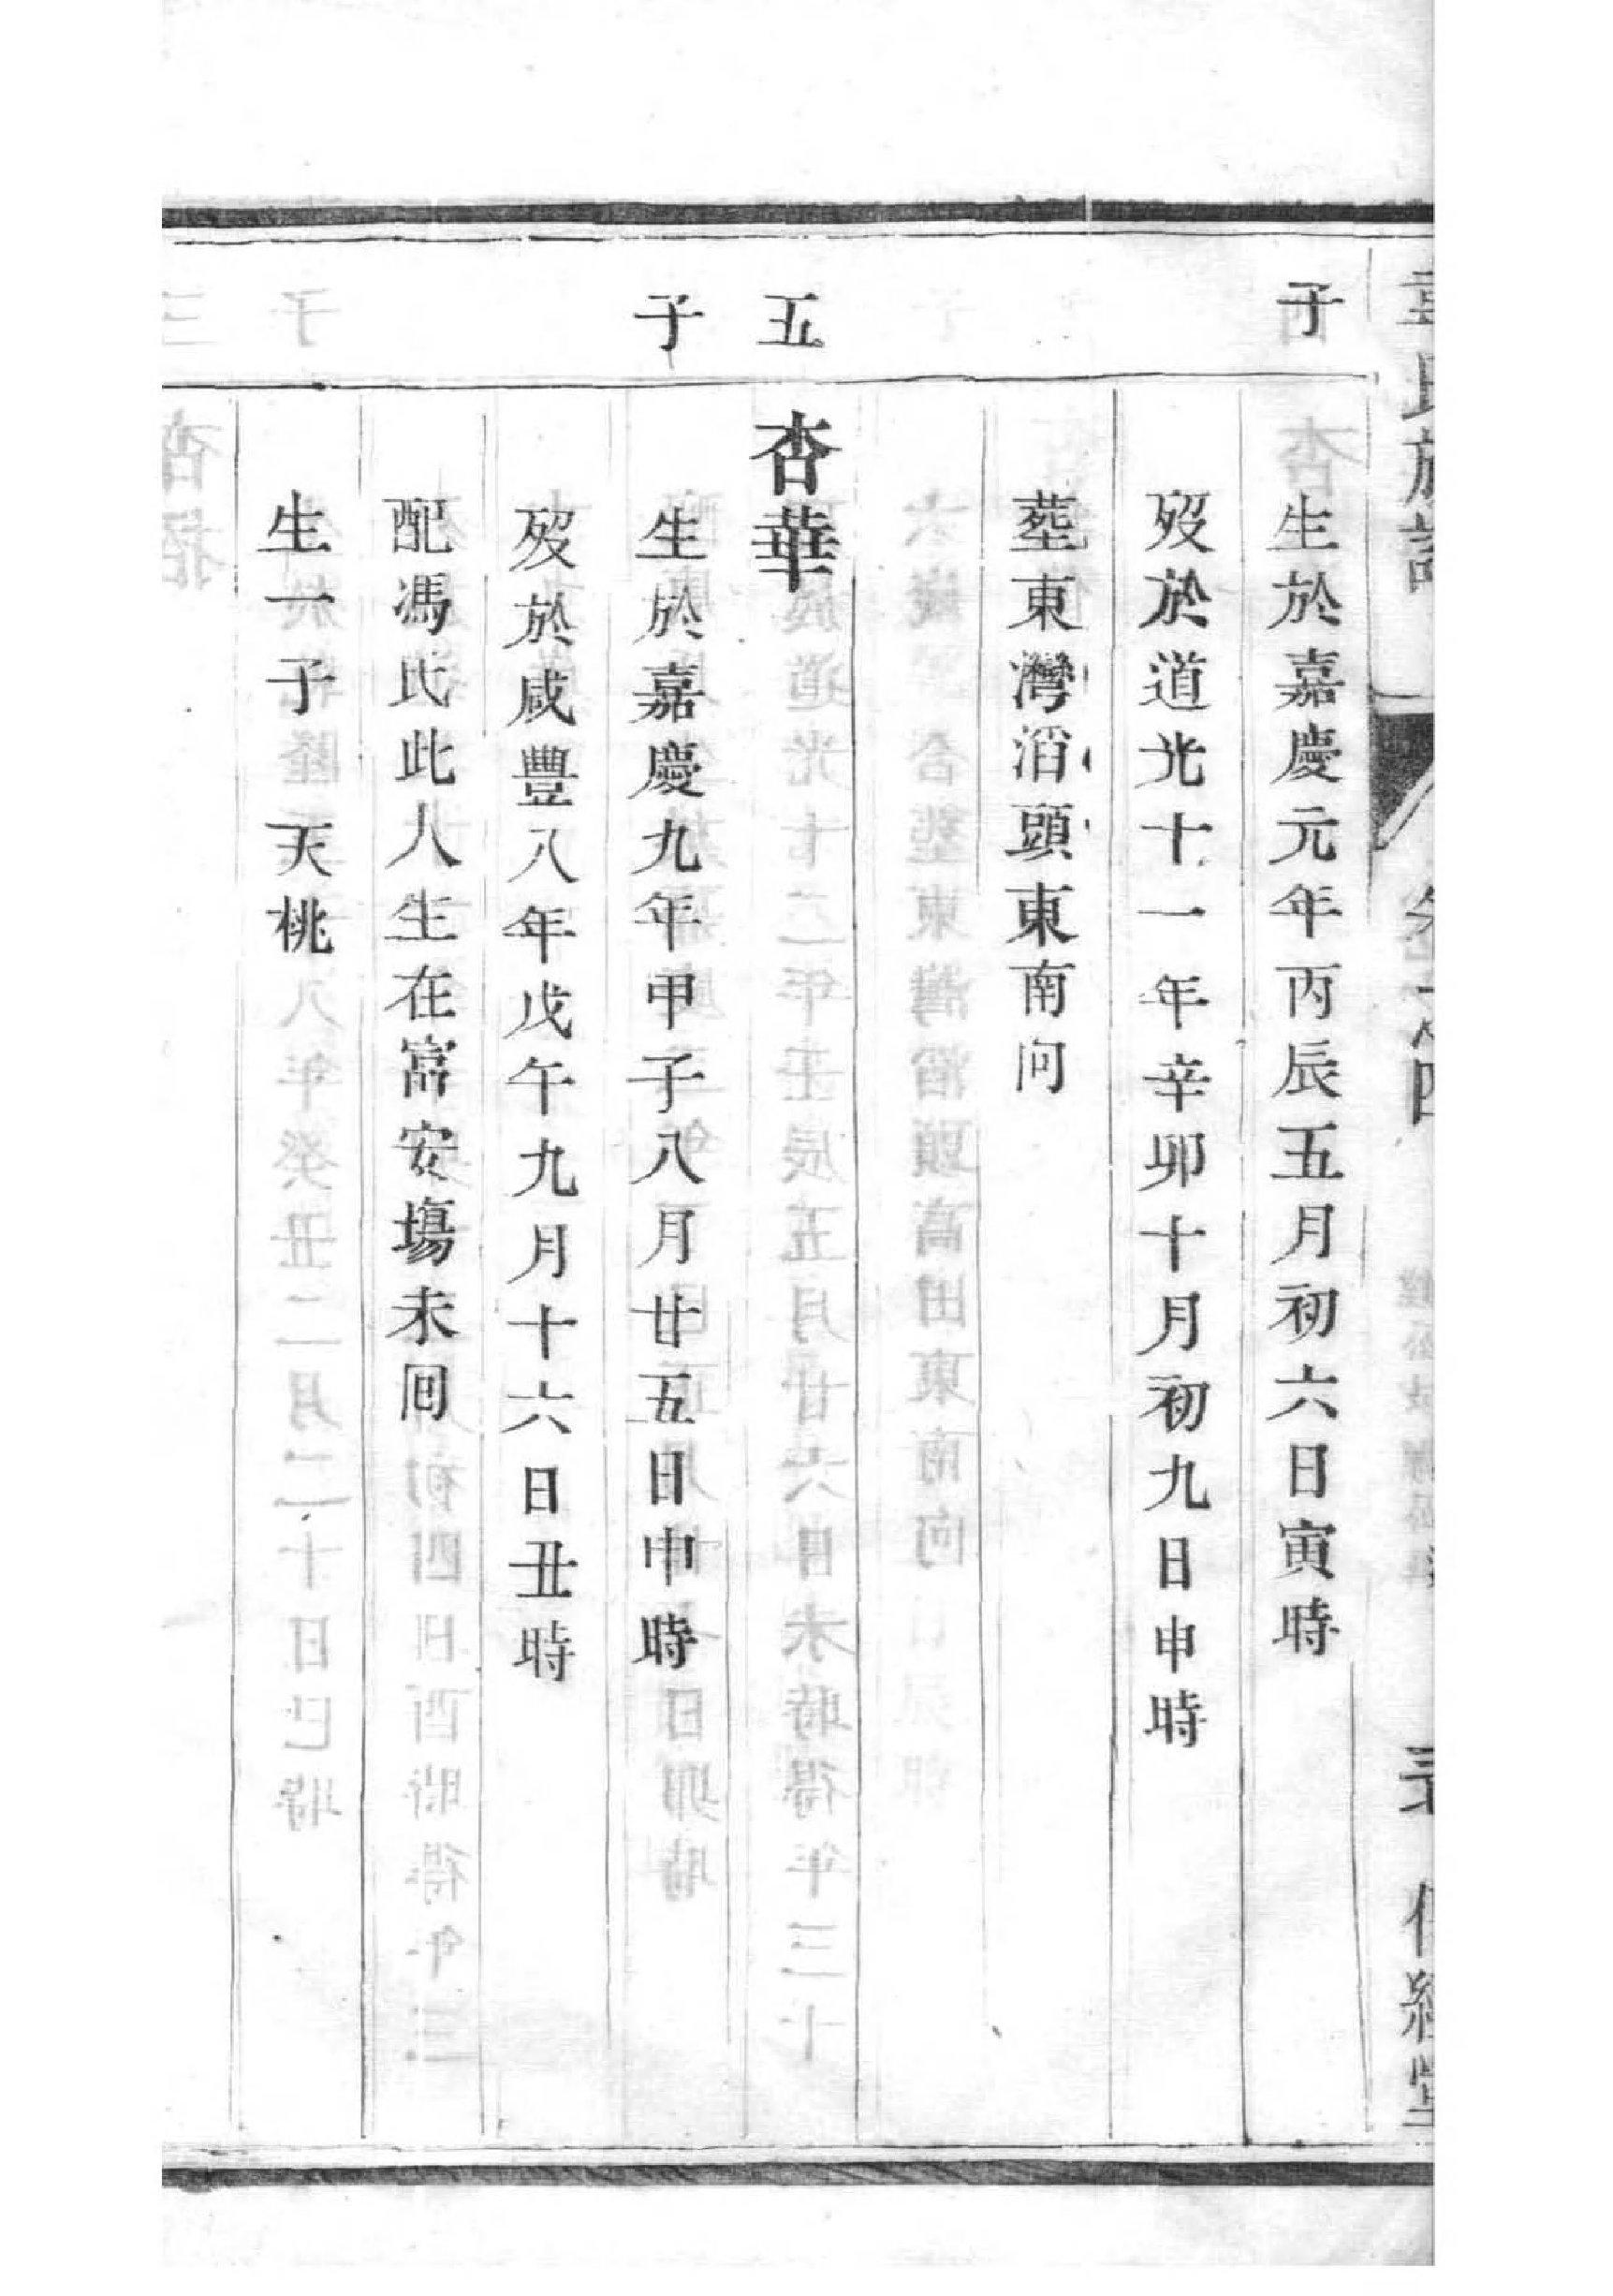 子
生於嘉慶元年丙辰五月初六日寅時
歿於道光十一年辛卯十月初九日申時
塟東灣滔頭東南向
五
杏華
子
生於嘉慶九年甲子八月廿五日申時
歿於咸豐八年戊午九月十六日丑時
配馮氏此人生在富安塲未囘
生一子 天桃